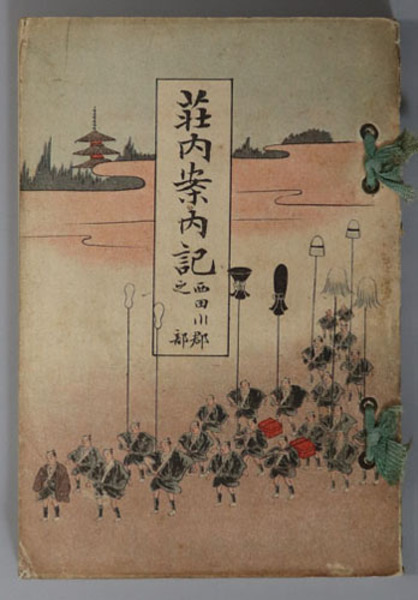 荘内案内記
西田川郡
之部